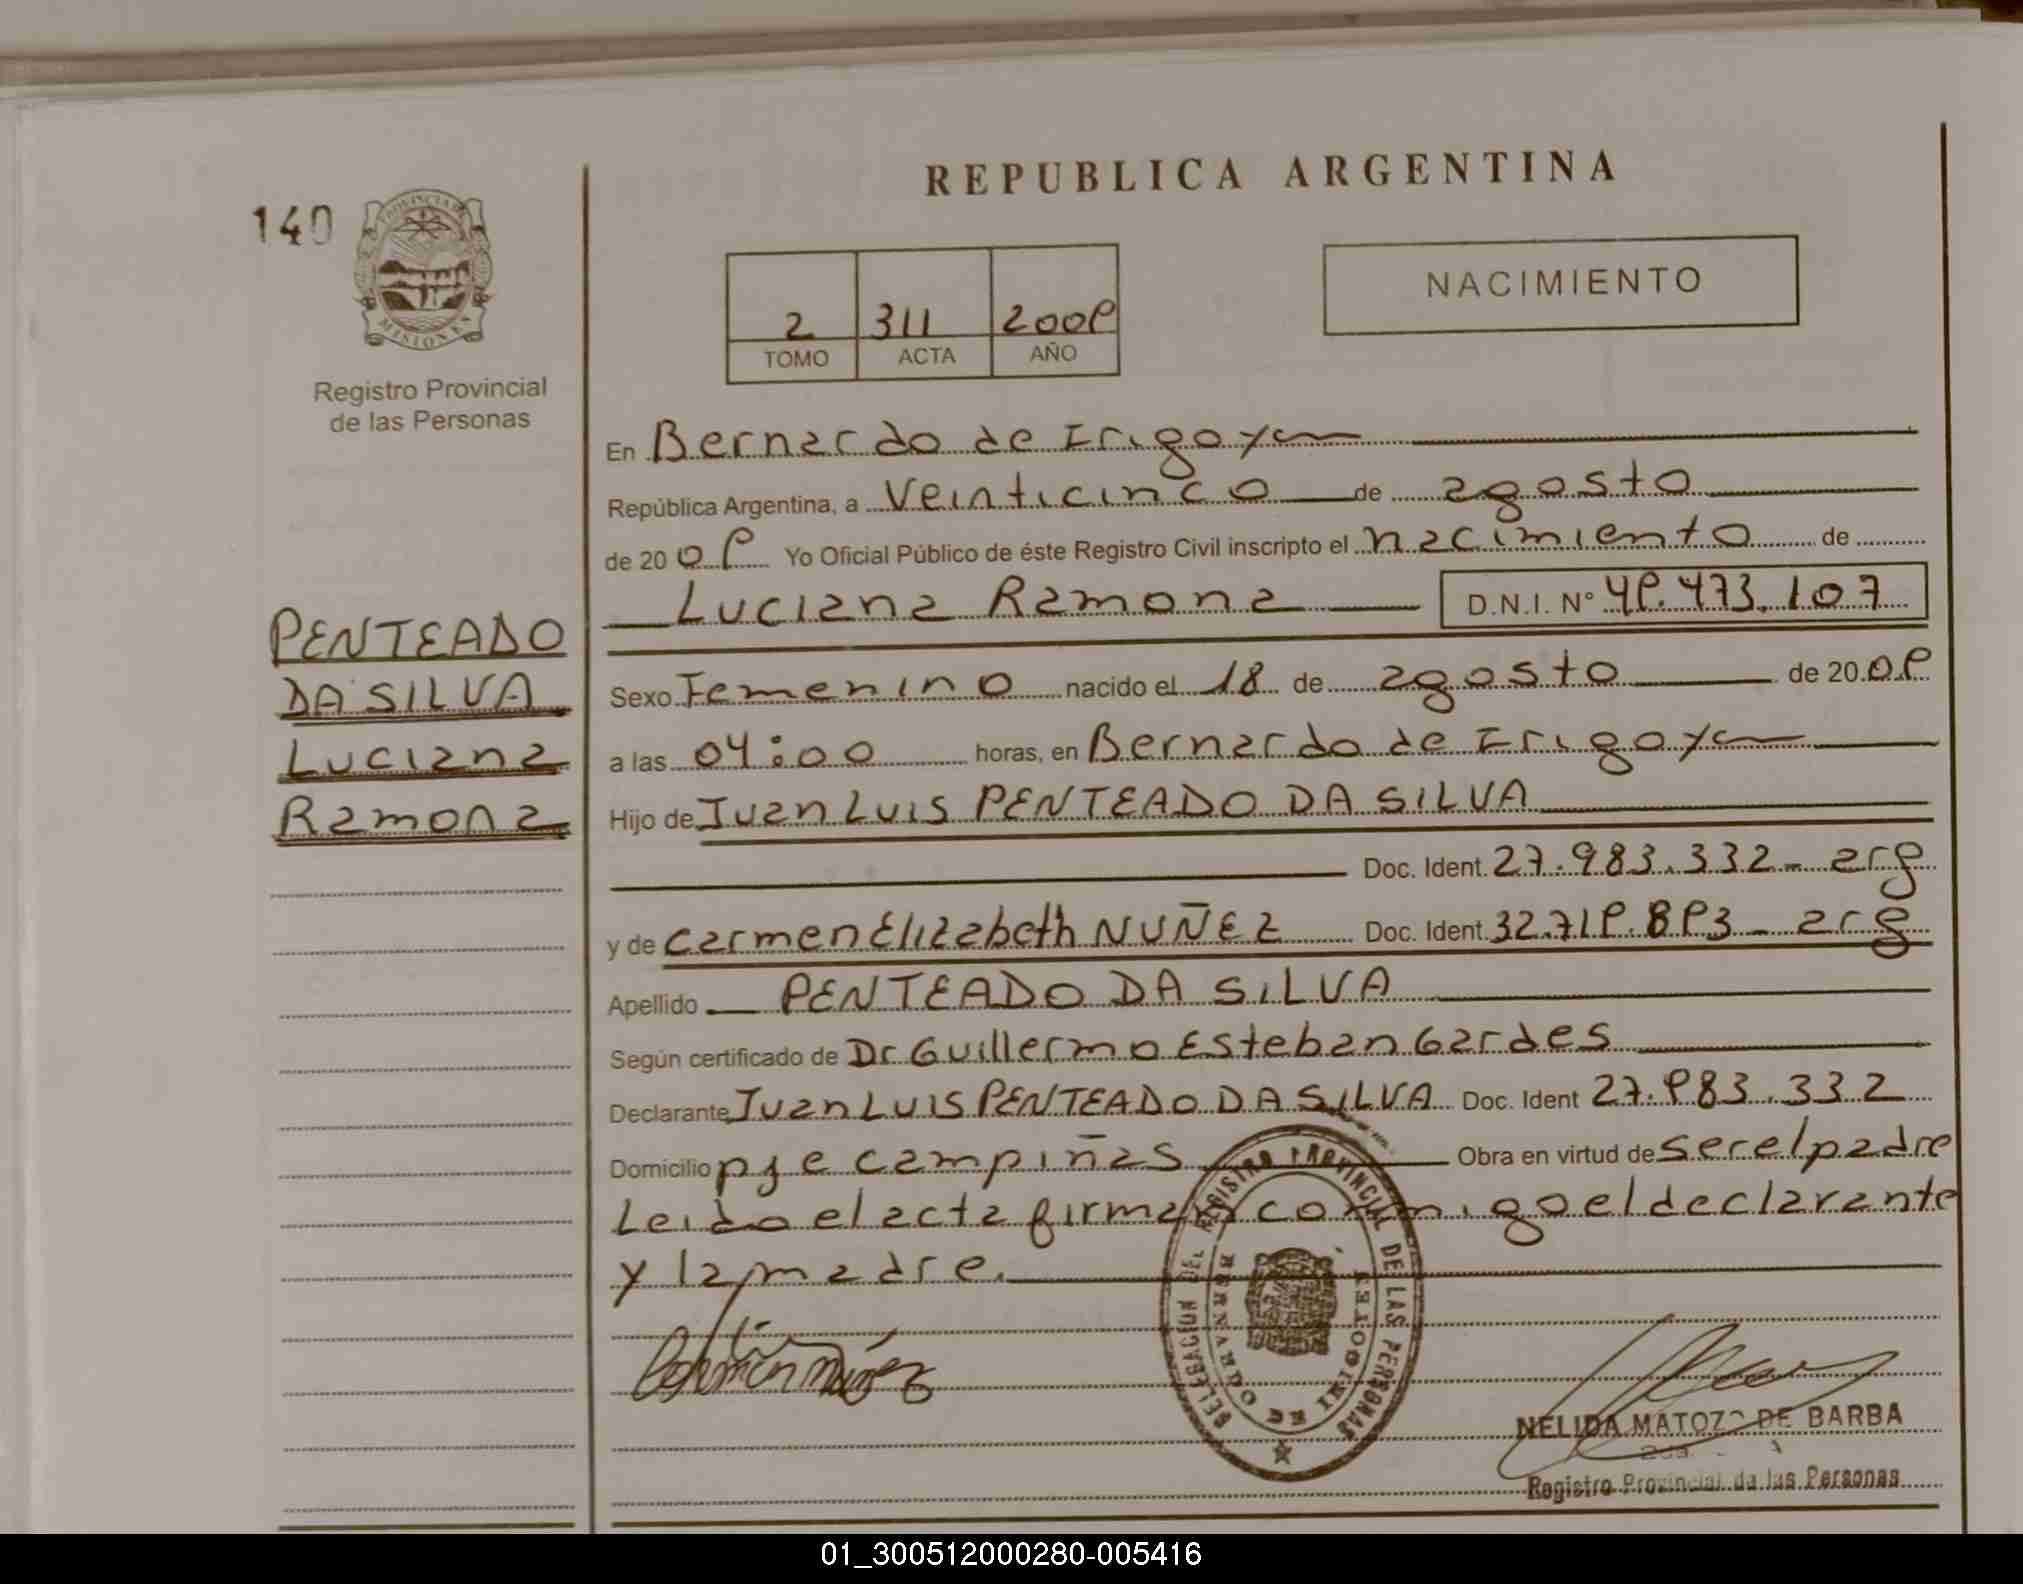 REPUBLICA ARGENTINA
140
PROVINCIA DE
MISIONES
Registro Provincial
de las Personas
2 311 2009
TOMO ACTA AÑO
NACIMIENTO
En Bernardo de Irigoyen
República Argentina, a Veinticinco de agosto
de 20 09 Yo Oficial Público de éste Registro Civil inscripto el nacimiento de
Luciana Ramona D.N.I. N° 49.473.107
PENTEADO
DA SILVA
Luciana
Ramona
Sexo Femenino nacido el 18 de agosto de 20 09
a las 04:00 horas, en Bernardo de Irigoyen
Hijo de Juan Luis PENTEADO DA SILVA
Doc. Ident. 27.983.332 - arg
y de Carmen Elizabeth NUÑEZ Doc. Ident. 32.719.893 - arg
Apellido PENTEADO DA SILVA
Según certificado de Dr Guillermo Esteban Gardes
Declarante Juan Luis PENTEADO DA SILVA Doc. Ident 27.983.332
Domicilio pje campiñas Obra en virtud de ser el padre
Leido el acta firman conmigo el declarante
y la madre.
DELEGACION DEL REGISTRO PROVINCIAL DE LAS PERSONAS
BERNARDO DE IRIGOYEN
NELIDA MATOZO DE BARBA
Registro Provincial de las Personas
01_300512000280-005416